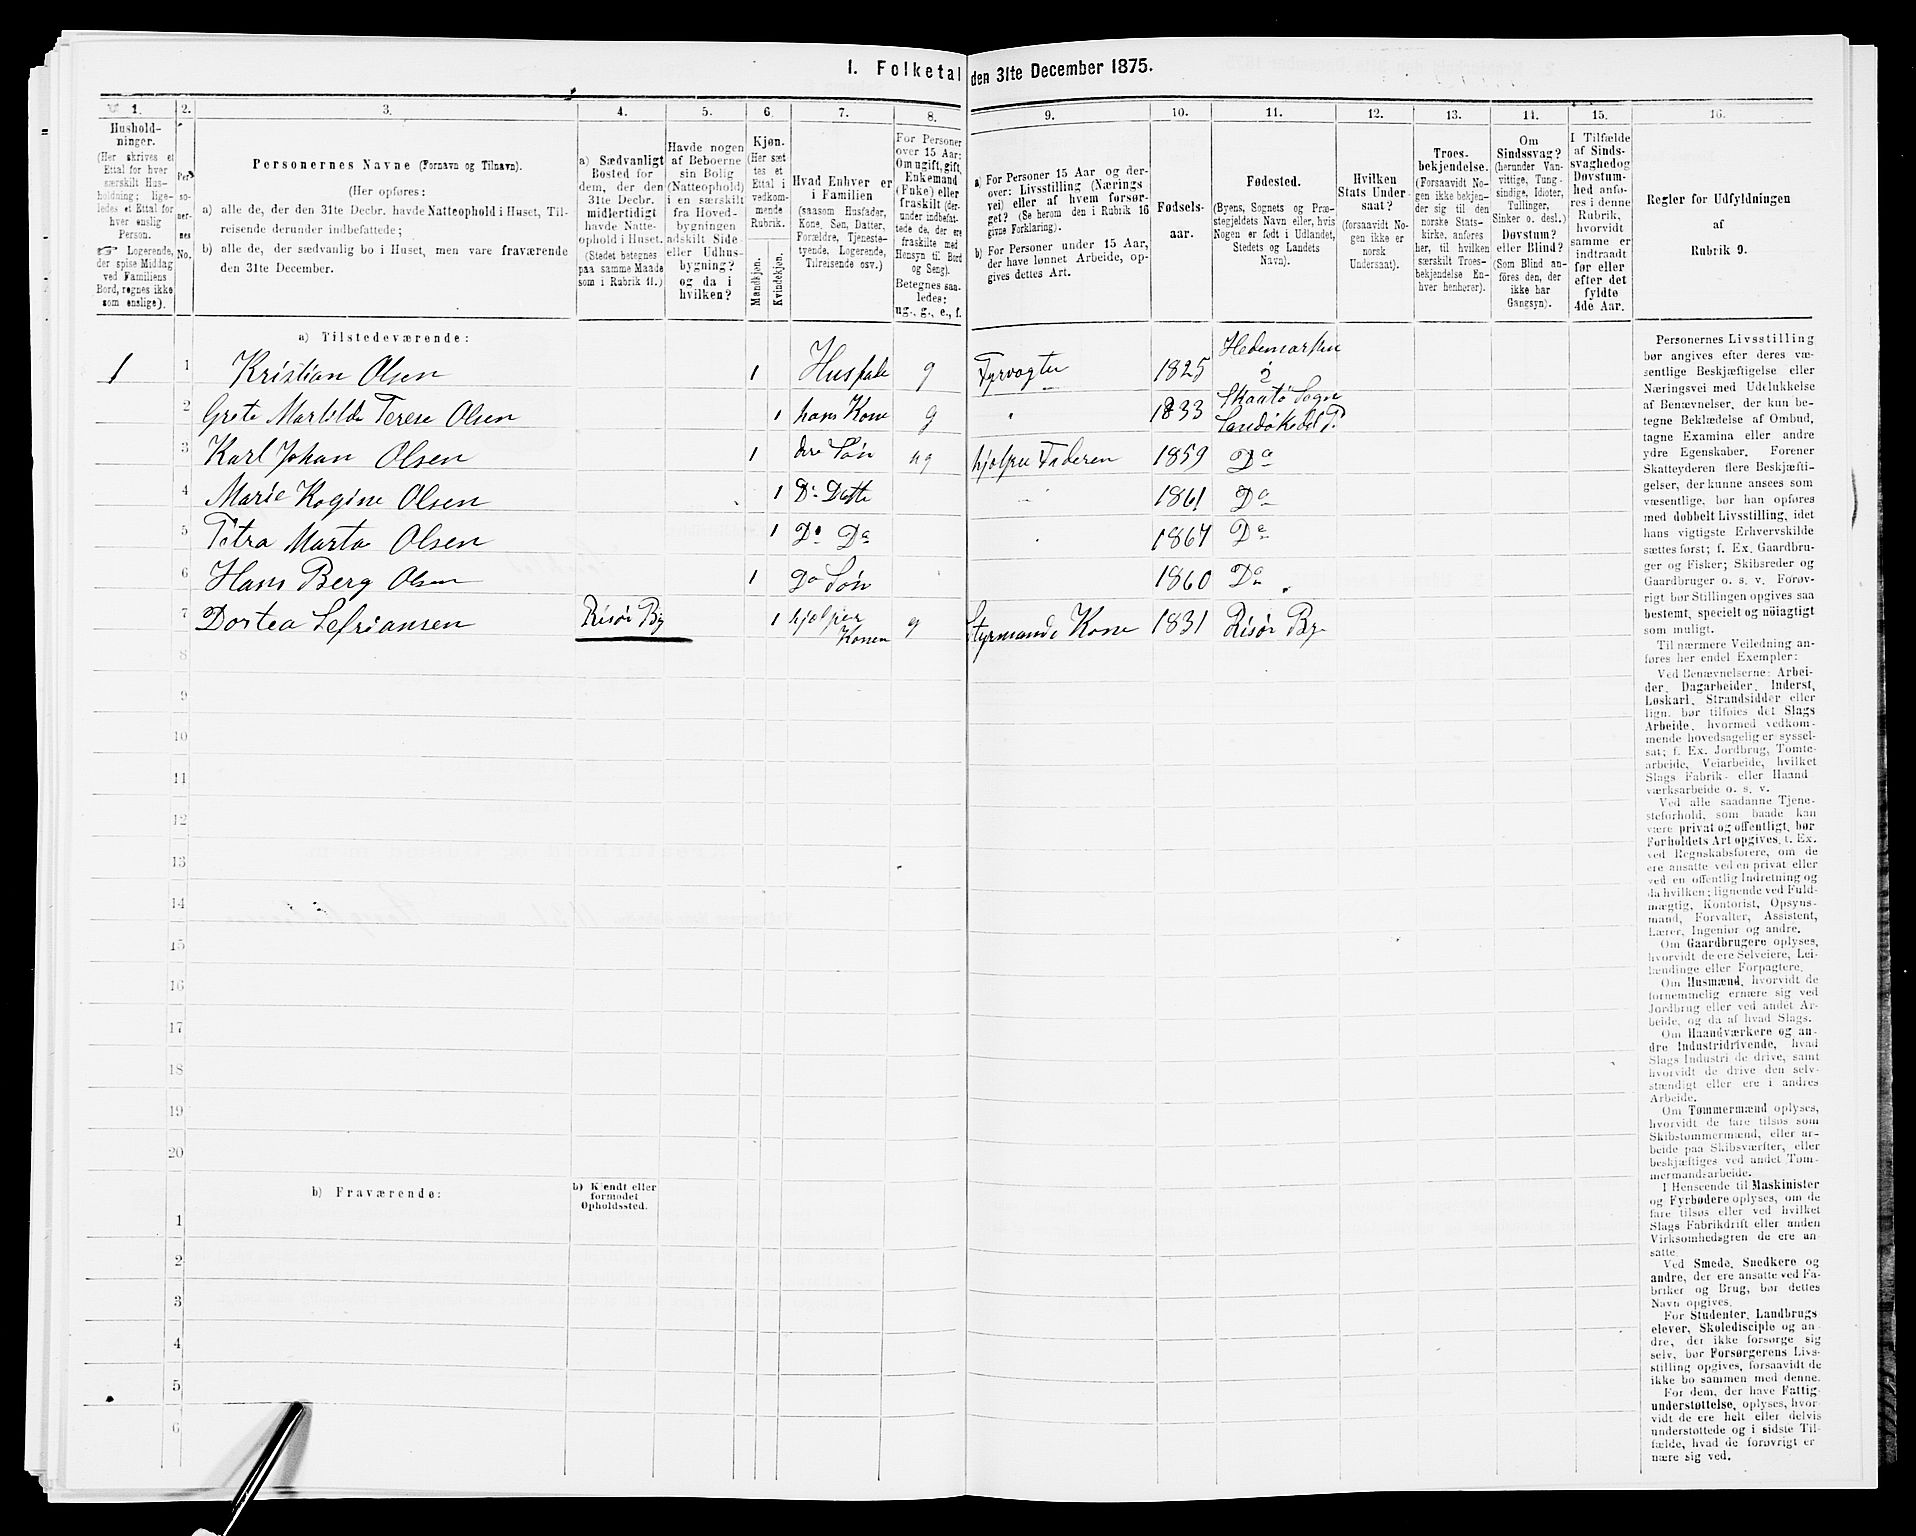 I. Folketal den 31te December 1875.
1. 2. 3. 4. 5. 6. 7. 8. 9. 10. 11. 12. 13. 14. 15. 16.
Hushold-
ninger.
(Her skrives et
Ettal for hver
særskilt Hus-
holdning; lige-
ledes et Ettal for
hver enslig
Person.
☞ Logerende,
der spise Middag
ved Familiens
Bord, regnes ikke
som enslige).
Per
so-
ner-
nes
No.
Personernes Navne (Fornavn og Tilnavn).
(Her opføres:
a) alle de, der den 31te Decbr. havde Natteophold i Huset, Til-
reisende derunder indbefattede;
b) alle de, der sædvanlig bo i Huset, men vare fraværende
den 31te December.
a) Sædvanligt
Bosted for
dem, der den
31te Decbr.
midlertidigt
havde Natte-
ophold i Huset.
(Stedet betegnes
paa samme Maade
som i Rubrik 11.)
Havde nogen
af Beboerne
sin Bolig
(Natteophold)
i en særskilt
fra Hoved-
bygningen
adskilt Side-
eller Udhus-
bygning?
og da i
hvilken?
Kjøn.
(Her sæt-
tes et
Ettal i
vedkom-
mende
Rubrik.
Mandkjøn.
Kvindekjøn.
Hvad Enhver er
i Familien
(saasom Husfader,
Kone, Søn, Datter,
Forældre, Tjeneste-
tyende, Logerende,
Tilreisende osv.)
For Personer
over 15 Aar:
Om ugift, gift,
Enkemand
(Enke) eller
fraskilt (der-
under indbefat-
tede de, der ere
fraskilte med
Hensyn til Bord
og Seng).
Betegnes saa-
ledes:
ug., g., e., f.
a) For Personer 15 Aar og der-
over: Livsstilling (Nærings
vei) eller af hvem forsør-
get? (Se herom den i Rubrik 16
givne Forklaring).
b) For Personer under 15 Aar,
der have lønnet Arbeide, op-
gives dettes Art.
Fødsels-
aar.
Fødested.
(Byens, Sognets og Præ-
stegjeldets Navn eller, hvis
Nogen er født i Udlandet,
Stedets og Landets
Navn).
Hvilken
Stats Under-
saat?
(forsaavidt No-
gen ikke er
norsk
Undersaat).
Troes-
bekjendelse.
(Forsaavidt No-
gen ikke bekjen-
der sig til den
norske Stats-
kirke, anføres
her, til hvilken
særskilt Troes-
bekjendelse En-
hver henhører).
Om
Sindssvag?
(herunder Van-
vittige, Tung-
sindige, Idioter,
Tullinger,
Sinker o. desl.)
Døvstum?
eller Blind?
(Som Blind an-
føres den, der
ikke har
Gangsyn).
I Tilfælde
af Sinds-
svaghed og
Døvstum-
hed anfø-
res i denne
Rubrik,
hvorvidt
samme er
indtraadt
før eller
efter det
fyldte
4de Aar.
Regler for Udfyldningen
af
Rubrik 9.
a) Tilstedeværende:
1 1 Kristian Olsen 1 g Fyrvogter 1825 Hedemarken
?
2 Grete Mathilde Terese Olsen 1 hans Kone g " 1833 Skaatø Sogn
3 Karl Johan Olsen 1 Søn ug hjælper Faderen 1859 Do
4 Marie Olsen 1 Do Datte 1861 Do
5 Petra Marta Olsen 1 Do Do 1867 Do
6 Hans Berg Olsen 1 Do Søn 1860 Do
7 Dortea Risør By 1 hjelper
Konen g Styrmands Kone 1831 Risør By
8
9
10
11
12
13
14
15
16
17
18
19
20
b) Fraværende:
b) Kjendt eller
formodet
Opholdssted.
1
2
3
4
5
6
Personernes Livsstilling
bør angives efter deres væ-
sentlige Beskjæftigelse eller
Næringsvei med Udelukkelse
af Benævnelser, der kun be-
tegne Beklædelse af Ombud,
tagne Examina eller andre
ydre Egenskaber. Forener
Skatteyderen flere Beskjæfti-
gelser, der kunne ansees som
væsentlige, bør han opføres
med dobbelt Livsstilling, idet
hans vigtigste Erhvervskilde
sættes først; f. Ex. Gaardbru-
ger og Fisker; Skibsreder og
Gaardbruger o. s. v. Forøv-
rigt bør Stillingen opgives saa
bestemt, specielt og nøiagtigt
som muligt.
Til nærmere Veiledning an-
føres her endel Exempler:
Ved Benævnelserne: Arbei-
der, Dagarbeider, Inderst,
Løskarl, Strandsidder eller
lign. bør tilføies det Slags
Arbeide, hvormed vedkom-
mende hovedsagelig er syssel-
sat; f. Ex. Jordbrug, Tomte-
arbeide, Veiarbeide, hvilket
Slags Fabrik- eller Haand-
værksarbeide o. s. v.
Ved alle saadanne Tjene-
steforhold, som baade kan
være privat og offentligt, bør
Forholdets Art opgives, f. Ex.
ved Regnskabsførere, om de
ere ansatte ved en privat eller
ved en offentlig Indretning og
da hvilken; lignende ved Fuld-
mægtig, Kontorist, Opsyns-
mand, Forvalter, Assistent,
Lærer, Ingeniør og andre.
Om Gaardbrugere oplyses,
hvorvidt de ere Selveiere, Lei-
lændinge eller Forpagtere.
Om Husmænd, hvorvidt de
fornemmelig ernære sig ved
Jordbrug eller ved andet Ar-
beide, og da af hvad Slags.
Om Haandværkere og an-
dre Industridrivende, hvad
Slags Industri de drive, samt
hvorvidt de drive den selv-
stændigt eller ere i andres
Arbeide.
Om Tømmermænd oplyses,
hvorvidt de fare tilsøs som
Skibstømmermænd, eller ar-
beide paa Skibsværfter, eller
beskjæftiges ved andet Tøm-
mermandsarbeide.
I Henseende til Maskinister
og Fyrbødere oplyses, om de
fare tilsøs eller ved hvilket
Slags Fabrikdrift eller anden
Virksomhedsgren de ere an-
satte.
Ved Smede, Snedkere og
andre, der ere ansatte ved Fa-
briker og Brug, bør dettes
Navn opgives.
For Studenter, Landbrugs
elever, Skoledisciple og an-
dre, der ikke forsørge sig
selv, bør Forsørgerens Livs-
stilling opgives, forsaavidt de
ikke bo sammen med denne.
For dem, der have Fattig-
understøttelse, oplyses, hvor-
vidt de ere helt eller delvis
understøttede og i sidste Til-
fælde, hvad de forøvrigt er
nære sig ved.